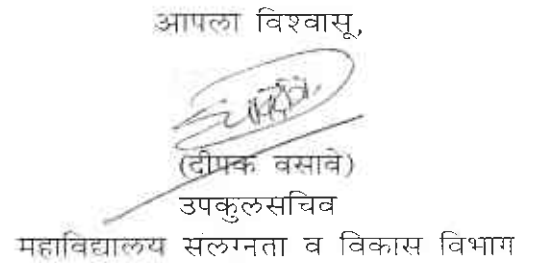 आपला विश्वासू,
(दीपक वसावे)
उपकुलसचिव
महाविद्यालय संलग्नता व विकास विभाग